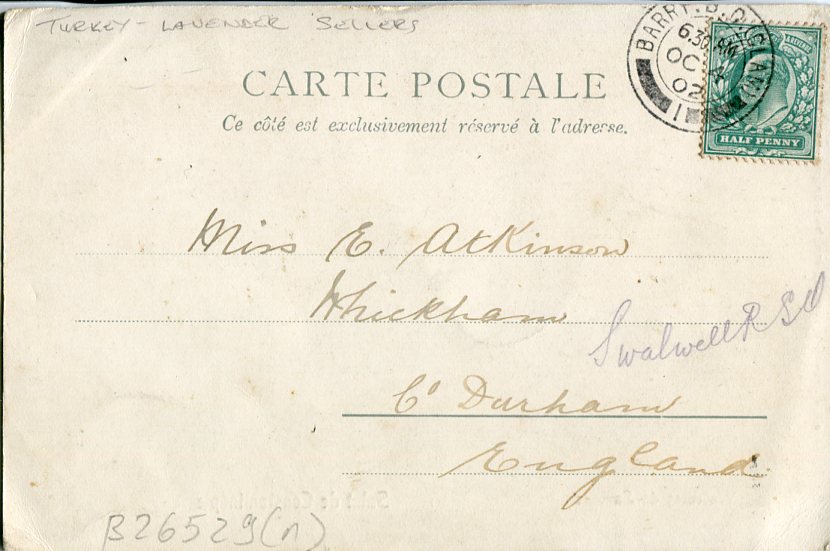 TURKEY - LAVENDER SELLERS
BARRY. D.O. GLAM
6.30 AM
OC 4
02
1
HALF PENNY
CARTE POSTALE
Ce côté est exclusivement réservé à l'adresse.
Miss E. Atkinson
Whickham
Swalwell R S O
Co Durham
England
B26529(n)